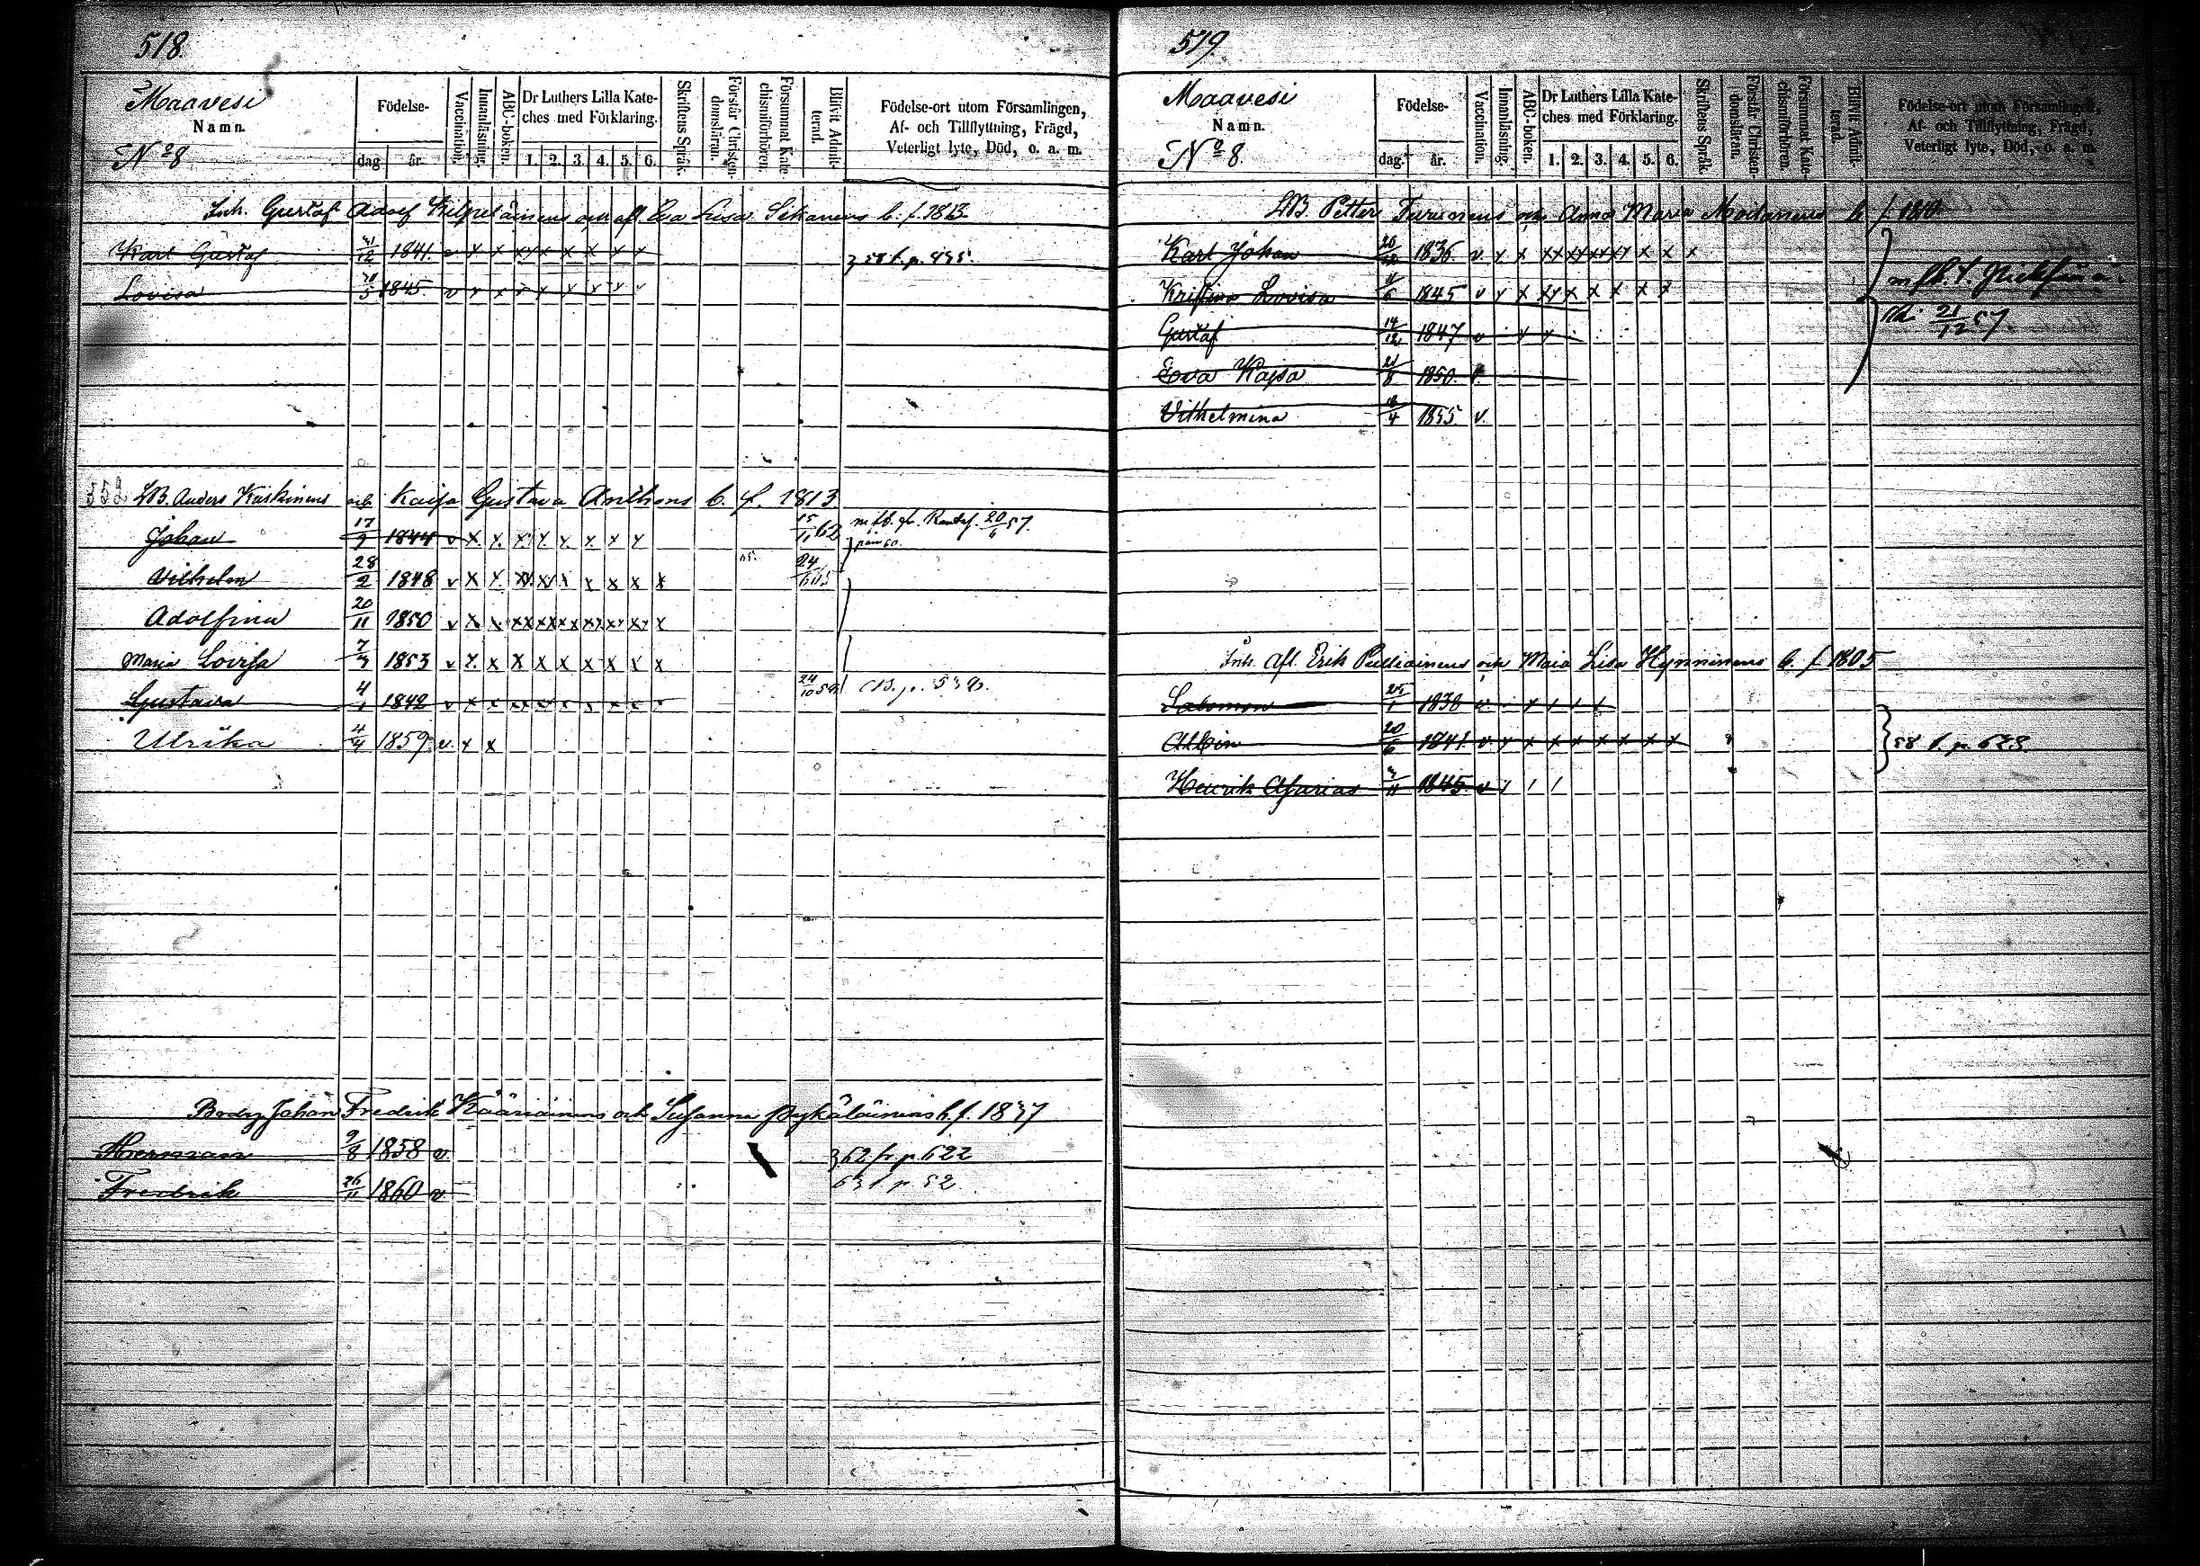 518.
Maavesi
Namn.
No 8
Födelse-
dag
år.
Vaccination.
Innanläsning.
ABC-boken.
Dr Luthers Lilla Kate-
ches med Förklaring.
1. 2. 3. 4. 5. 6.
Skriftens Språk.
Förstår Christen-
domsläran.
Försummat Kate-
chismiförhören.
Blifvit Admit-
terad.
Födelse-ort utom Församlingen,
Af- och Tillflyttning, Frägd,
Veterligt lyte, Död, o. a. m.
Inh. Gustaf Adolf Kilpeläinens och afl. Eva Lisa b. f. 1813
Karl Gustaf 31/12 1841. v x x x x x x x x x
Lovisa 5 1845 v x x x x x x x x
LB. Anders Kaskinens och Kaisa Gustava Anthons b. f. 1813
Johan 17/9 1844 v x x x x x x x x 15/11 62 m fb. fr. Rantas. 20/6 57.
Vilhelm 28/2 1848 v x x xx xx x x x x x 24
Adolfina 20/11 1850 v x x xx xx xx xx xx xx x
Maria Lovisa 7/7 1853 v x x x x x x x x x
Gustava 4/1 1842 v x x x x x x x x x 24/10 58
Ulrika 4/4 1859. v. x x
Johan Fredrik Kääriäinens och Susanna Pykäläinens b. f. 1837
Herman 9/8 1858 v. 62 fr. p. 622
Fredrik 26/11 1860 v 63 t. p. 52
519.
Maavesi
Namn.
No 8.
Födelse-
dag.
år.
Vaccination.
Innanläsning.
ABC-boken.
Dr Luthers Lilla Kate-
ches med Förklaring.
1. 2. 3. 4. 5. 6.
Skriftens Språk.
Förstår Christen-
domsläran.
Försummat Kate-
chismiförhören.
Blifvit Admit-
terad.
Födelse-ort utom Församlingen,
Af- och Tillflyttning, Frägd,
Veterligt lyte, Död, o. a. m.
LB. Petter Turunens och Anna Maria Moilanens b. f. 1810
Karl Johan 1836 v. x x xx xx xx xx x x x
Kristina Lovisa 6 1845 v v x xx x x x x x m fb. t.
Gustaf 14/12 1847 v x x 21/12 57.
Eva Kajsa 21/8 1850.
Vilhelmina 4 1855. v.
Inh. Afl. Erik Pulliainens och Maia Lisa Hynninens b. f. 1805
Salomon 25/1 1838 v.
Albin 20/6 1841. v x x x x x x x x 58 t. p. 628.
Henrik Asarias 11 1845 v